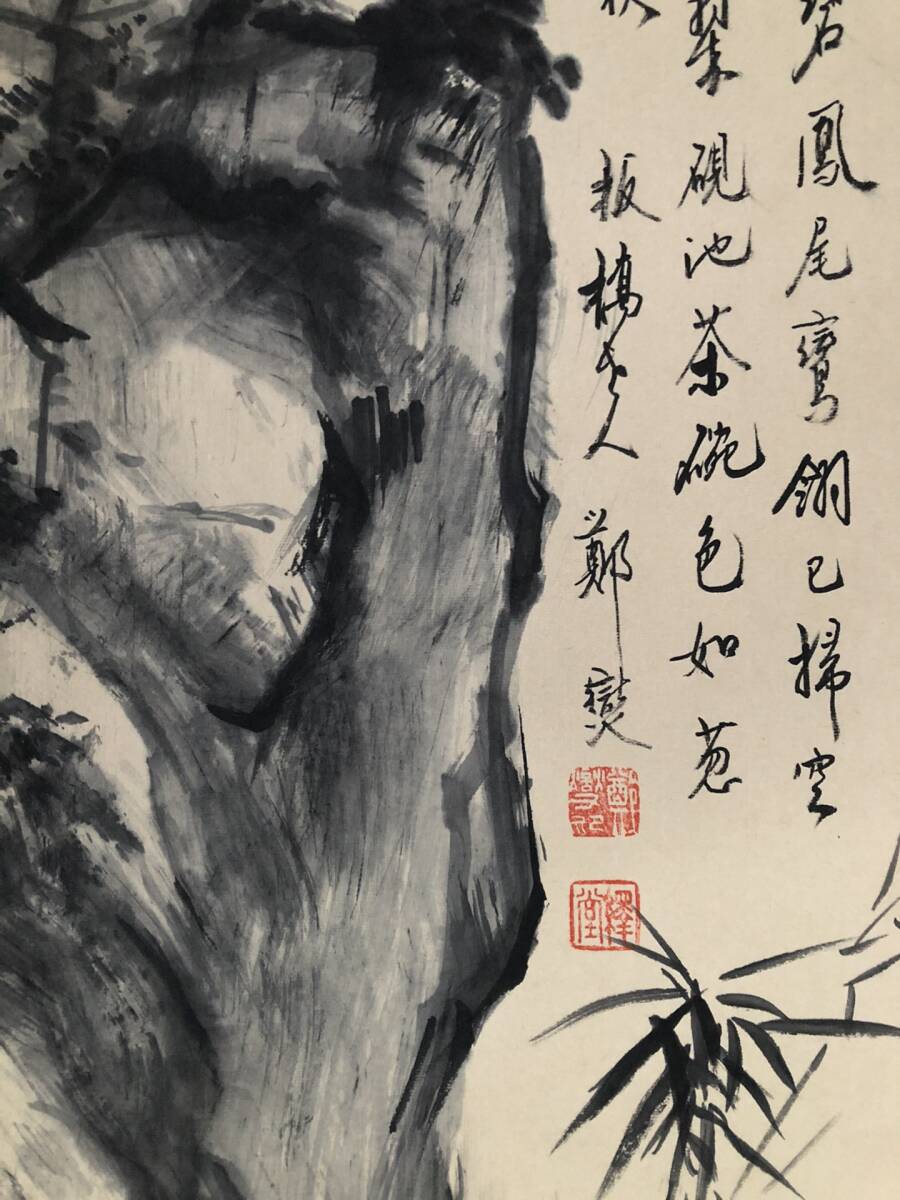 鳳尾鸞翎已掃空
硯池茶碗色如葱
板橋老人鄭燮
鄭燮印